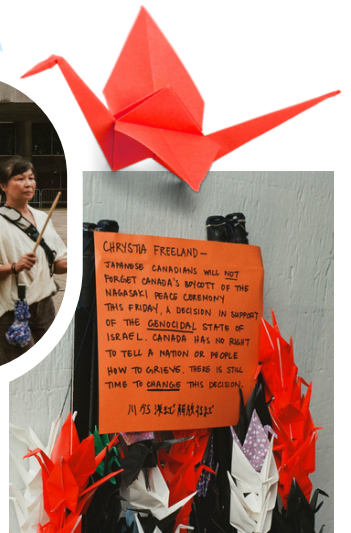 CHRYSTIA FREELAND—
JAPANESE CANADIANS WILL NOT
FORGET CANADA'S BOYCOTT OF THE
NAGASAKI PEACE CEREMONY
THIS FRIDAY, A DECISION IN SUPPORT
OF THE GENOCIDAL STATE OF
ISRAEL. CANADA HAS NO RIGHT
TO TELL A NATION OR PEOPLE
HOW TO GRIEVE. THERE IS STILL
TIME TO CHANGE THIS DECISION.